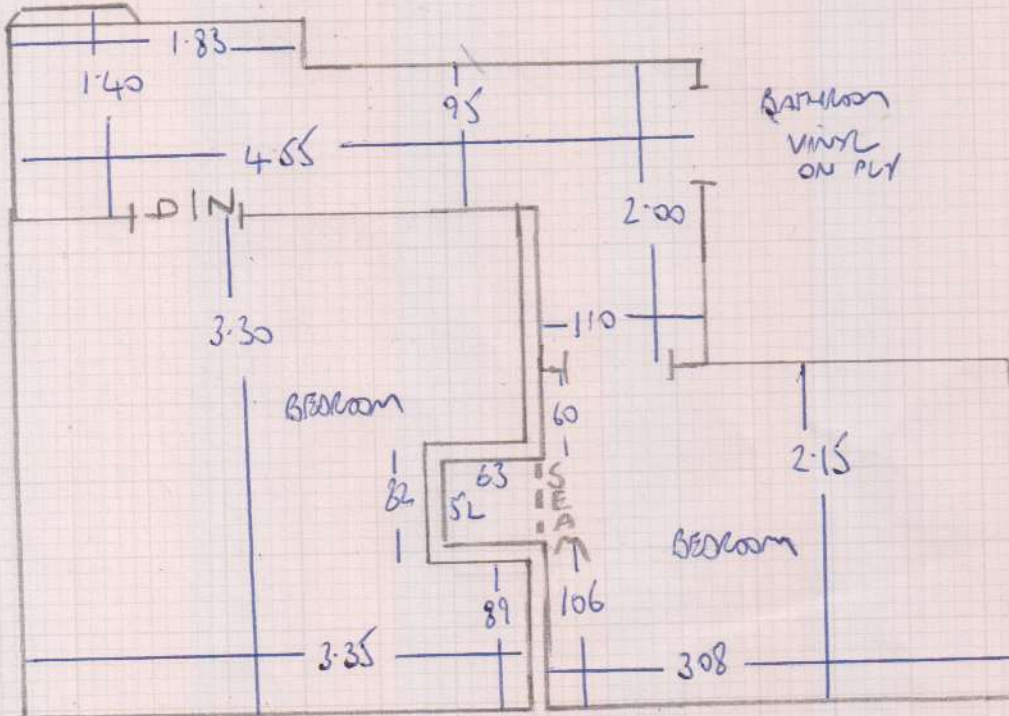 1.83
1.40
95
BATHROOM
VINYL
ON PLY
4.55
DIN
2.00
3.30
110
BEDROOM
60
2.15
63
82
52
SEAM
BEDROOM
89
106
3.35
3.08